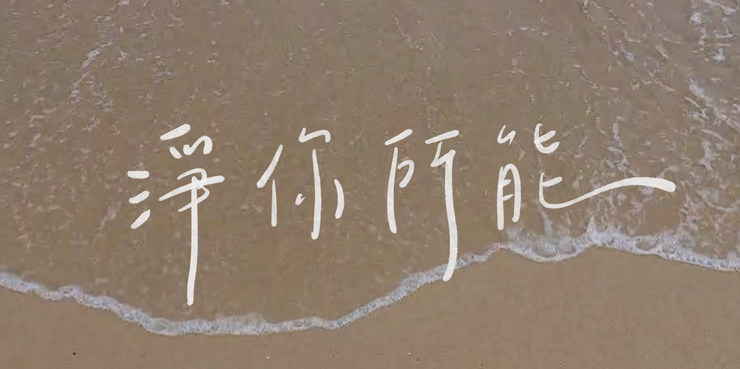 淨你所能